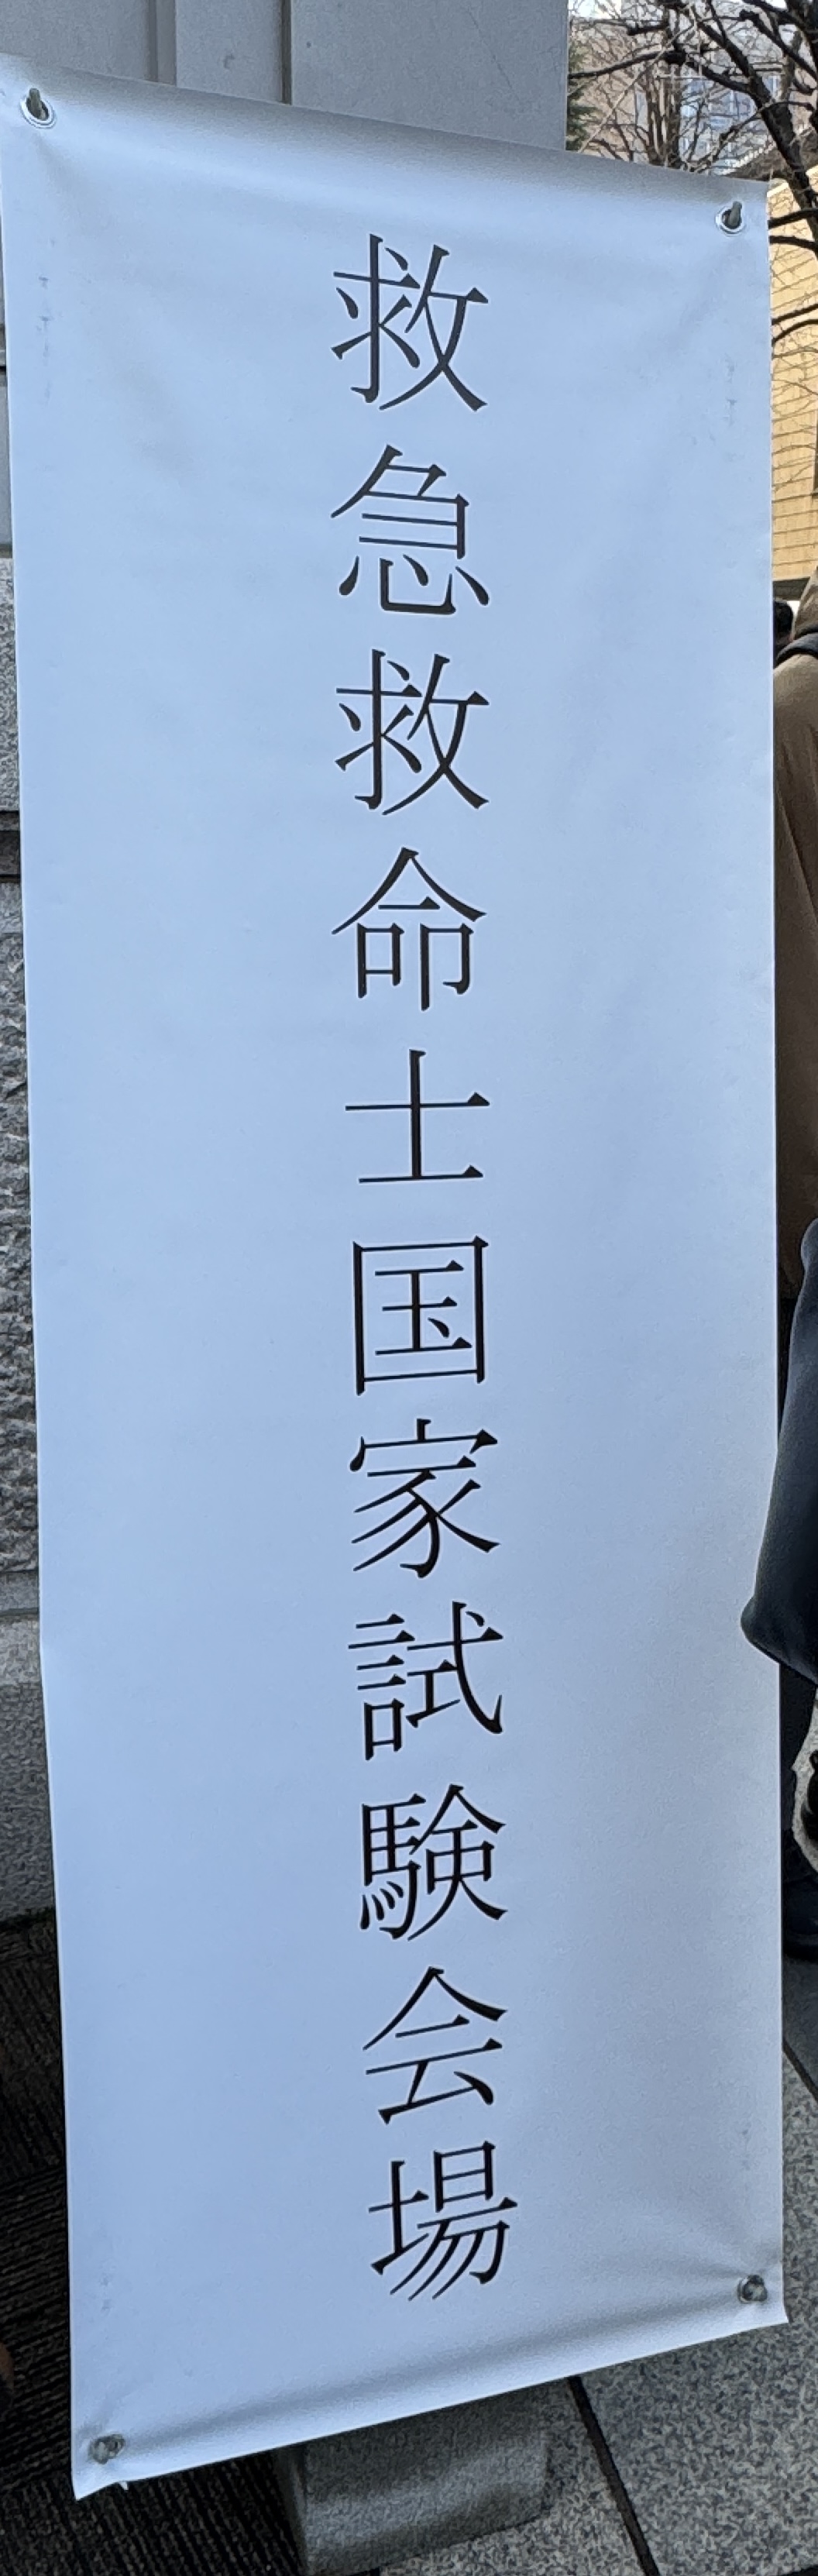 救急救命士国家試験会場